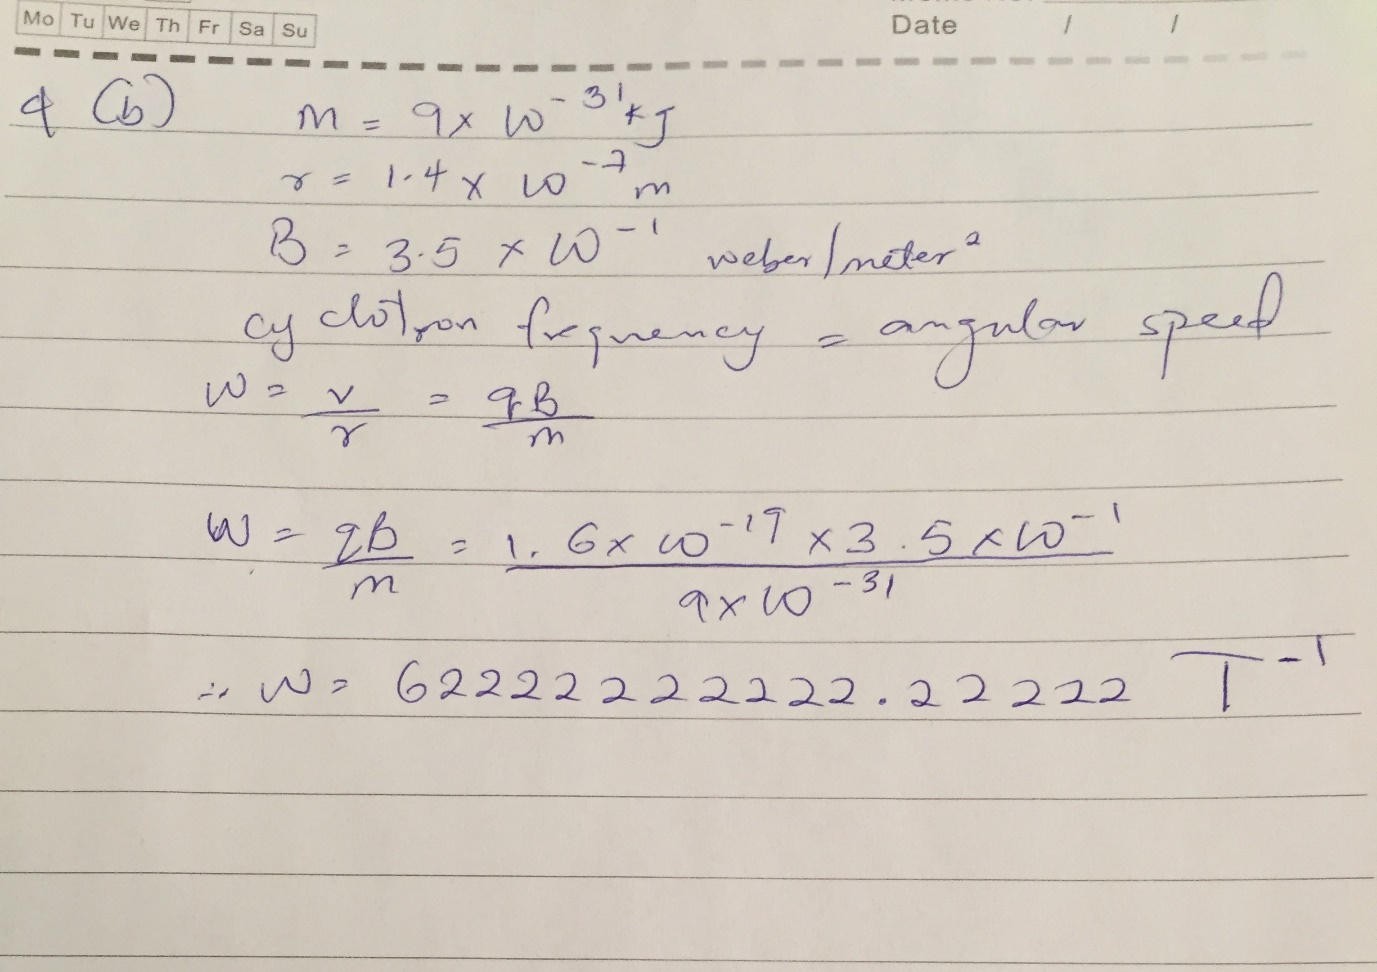 Mo Tu We Th Fr Sa Su
Date / /
4 (b) m = 9 × 10⁻³¹ kg
r = 1.4 × 10⁻⁷ m
B = 3.5 × 10⁻¹ weber/meter²
cyclotron frequency = angular speed
W = v/r = qB/m
W = qB/m = 1.6 × 10⁻¹⁹ × 3.5 × 10⁻¹ / 9 × 10⁻³¹
∴ W = 62222222222.22222 T⁻¹